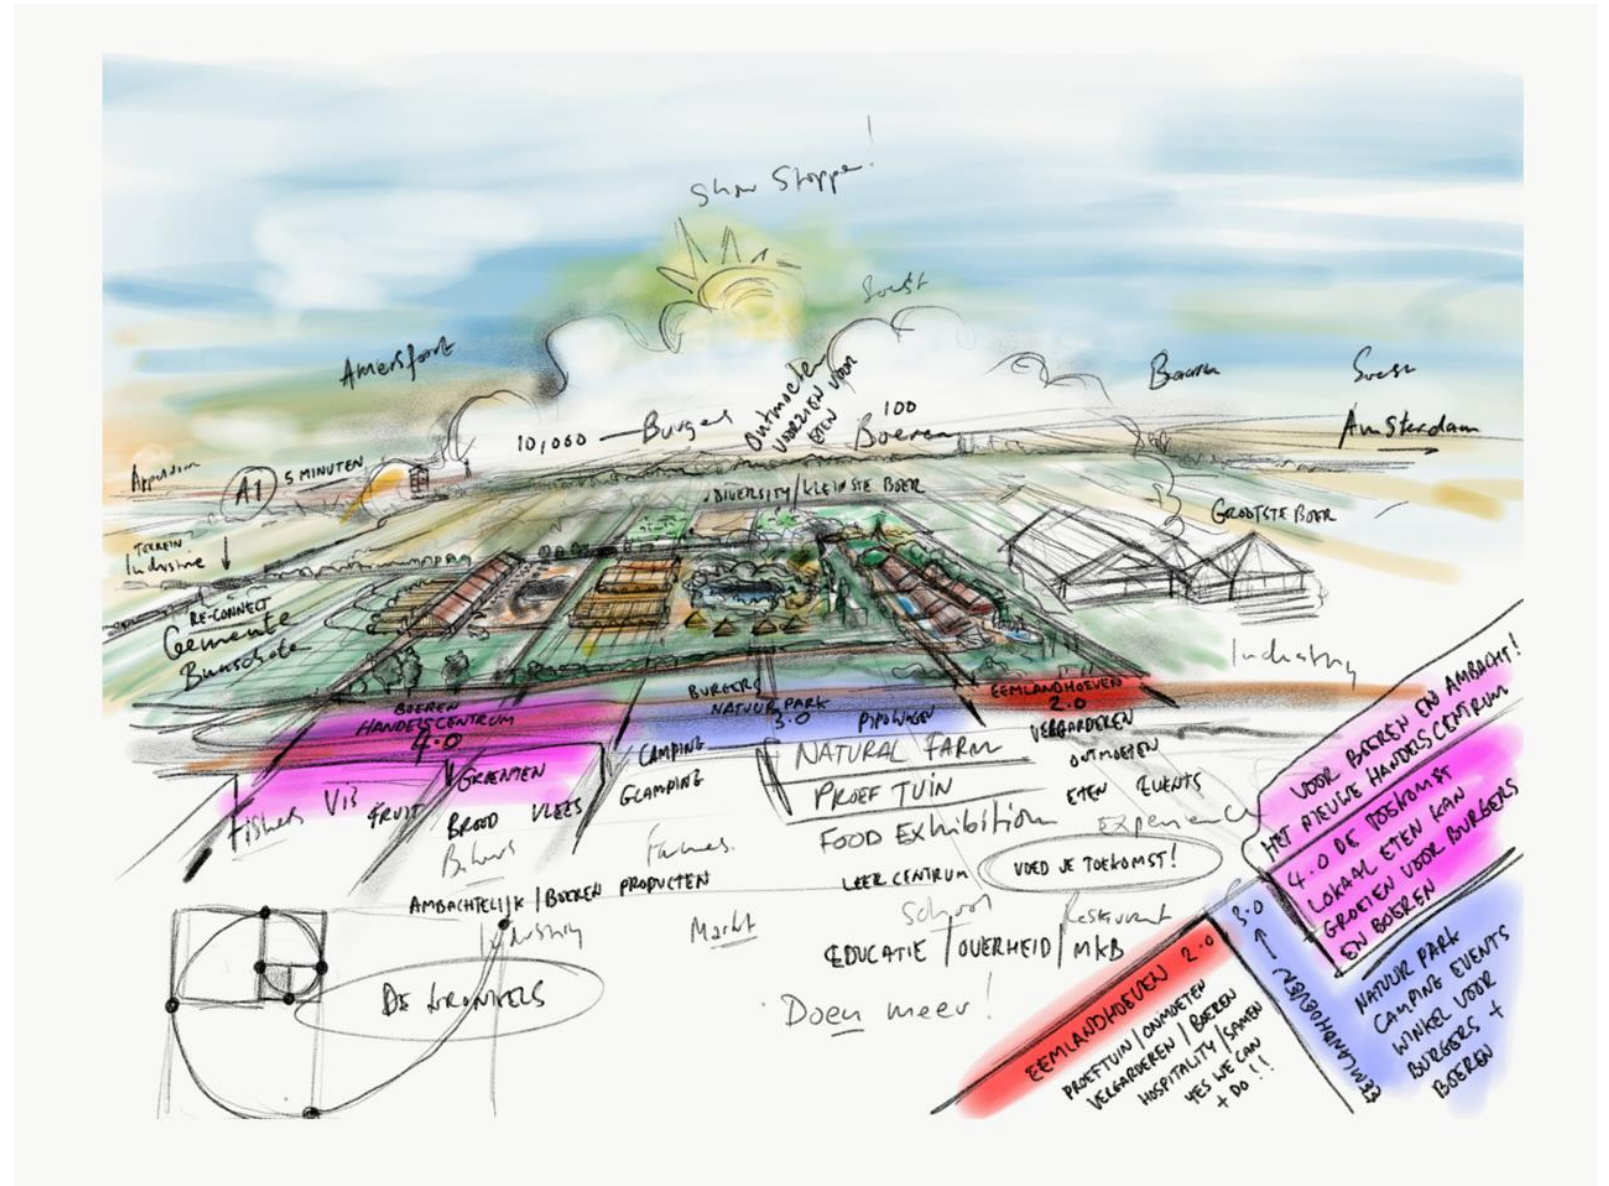 Show Stopper!
Soest
Amersfoort
Baarn
Soest
Amsterdam
10,000 Burgers
Ontmoeten
VOORZIEN VOOR
ETEN
100
Boeren
Appeldoorn
A1
5 MINUTEN
DIVERSITY/KLEINSTE BOER
GROOTSTE BOER
TERREIN
Industrie
RE-CONNECT
Gemeente
Bunschote
Industry
BOEREN
HANDELSCENTRUM
4.0
BURGERS
NATUUR PARK
3.0
PIPOWAGEN
EEMLANDHOEVEN
2.0
VERGARDEREN
ONTMOETEN
ETEN EVENTS
Experience
CAMPING
GLAMPING
NATURAL FARM
PROEF TUIN
FOOD Exhibition
LEER CENTRUM
VOED JE TOEKOMST!
Fishers
VIS
FRUIT
GROENTEN
BROOD
VLEES
Bakers
Farmers
AMBACHTELIJK / BOEREN PRODUCTEN
Industry
Markt
School
Restaurant
EDUCATIE / OVERHEID / MKB
Doen meer!
VOOR BOEREN EN AMBACHT!
HET NIEUWE HANDELSCENTRUM
4.0 DE TOEKOMST
LOKAAL ETEN KAN
GROEIEN VOOR BURGERS
EN BOEREN
3.0
EEMLANDHOEVEN
NATUUR PARK
CAMPING EVENTS
WINKEL VOOR
BURGERS +
BOEREN
EEMLANDHOEVEN 2.0
PROEFTUIN / ONMOETEN
VERGARDEREN / BOEREN
HOSPITALITY / SAMEN
YES WE CAN
+ DO!!